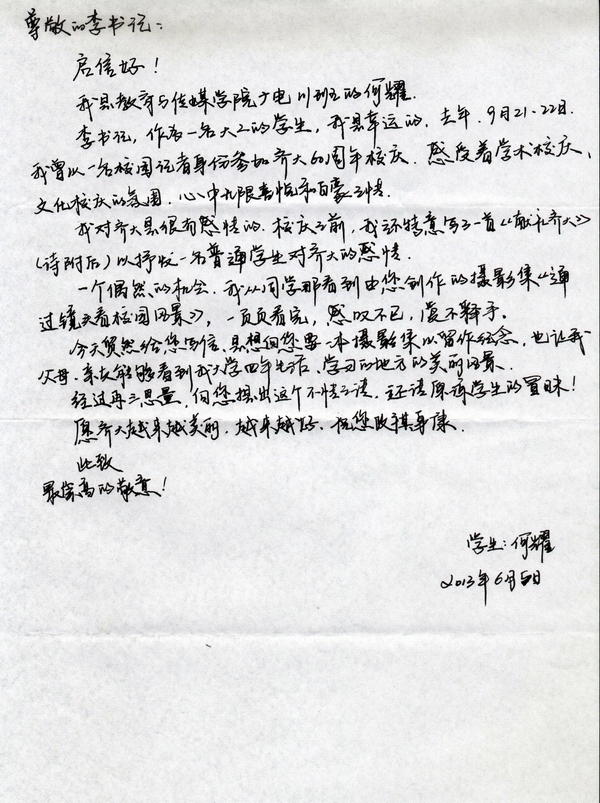 尊敬的李书记：
启信好！
我是教育与传媒学院广电111班的何耀.
李书记，作为一名大二的学生，我是幸运的.去年.9月21.22日.
我曾以一名校园记者身份参加齐大60周年校庆.感受着学术校庆、
文化校庆的氛围.心中无限喜悦和自豪之情.
我对齐大是很有感情的.校庆之前，我还特意写了一首《献礼齐大》
（诗附后）以抒发一名普通学生对齐大的感情.
一个偶然的机会.我从同学那看到由您创作的摄影集《通
过镜头看校园风景》，一页页看完，感叹不已，爱不释手.
今天贸然给您写信.是想向您要一本摄影集以留作纪念，也让我
父母.亲友能够看到我大学四年生活、学习的地方的美丽风景.
经过再三思量，向您提出这个不情之请.还请原谅学生的冒昧！
愿齐大越来越美丽.越来越好.祝您政祺身康.
此致
最崇高的敬意！
学生：何耀
2013年6月5日